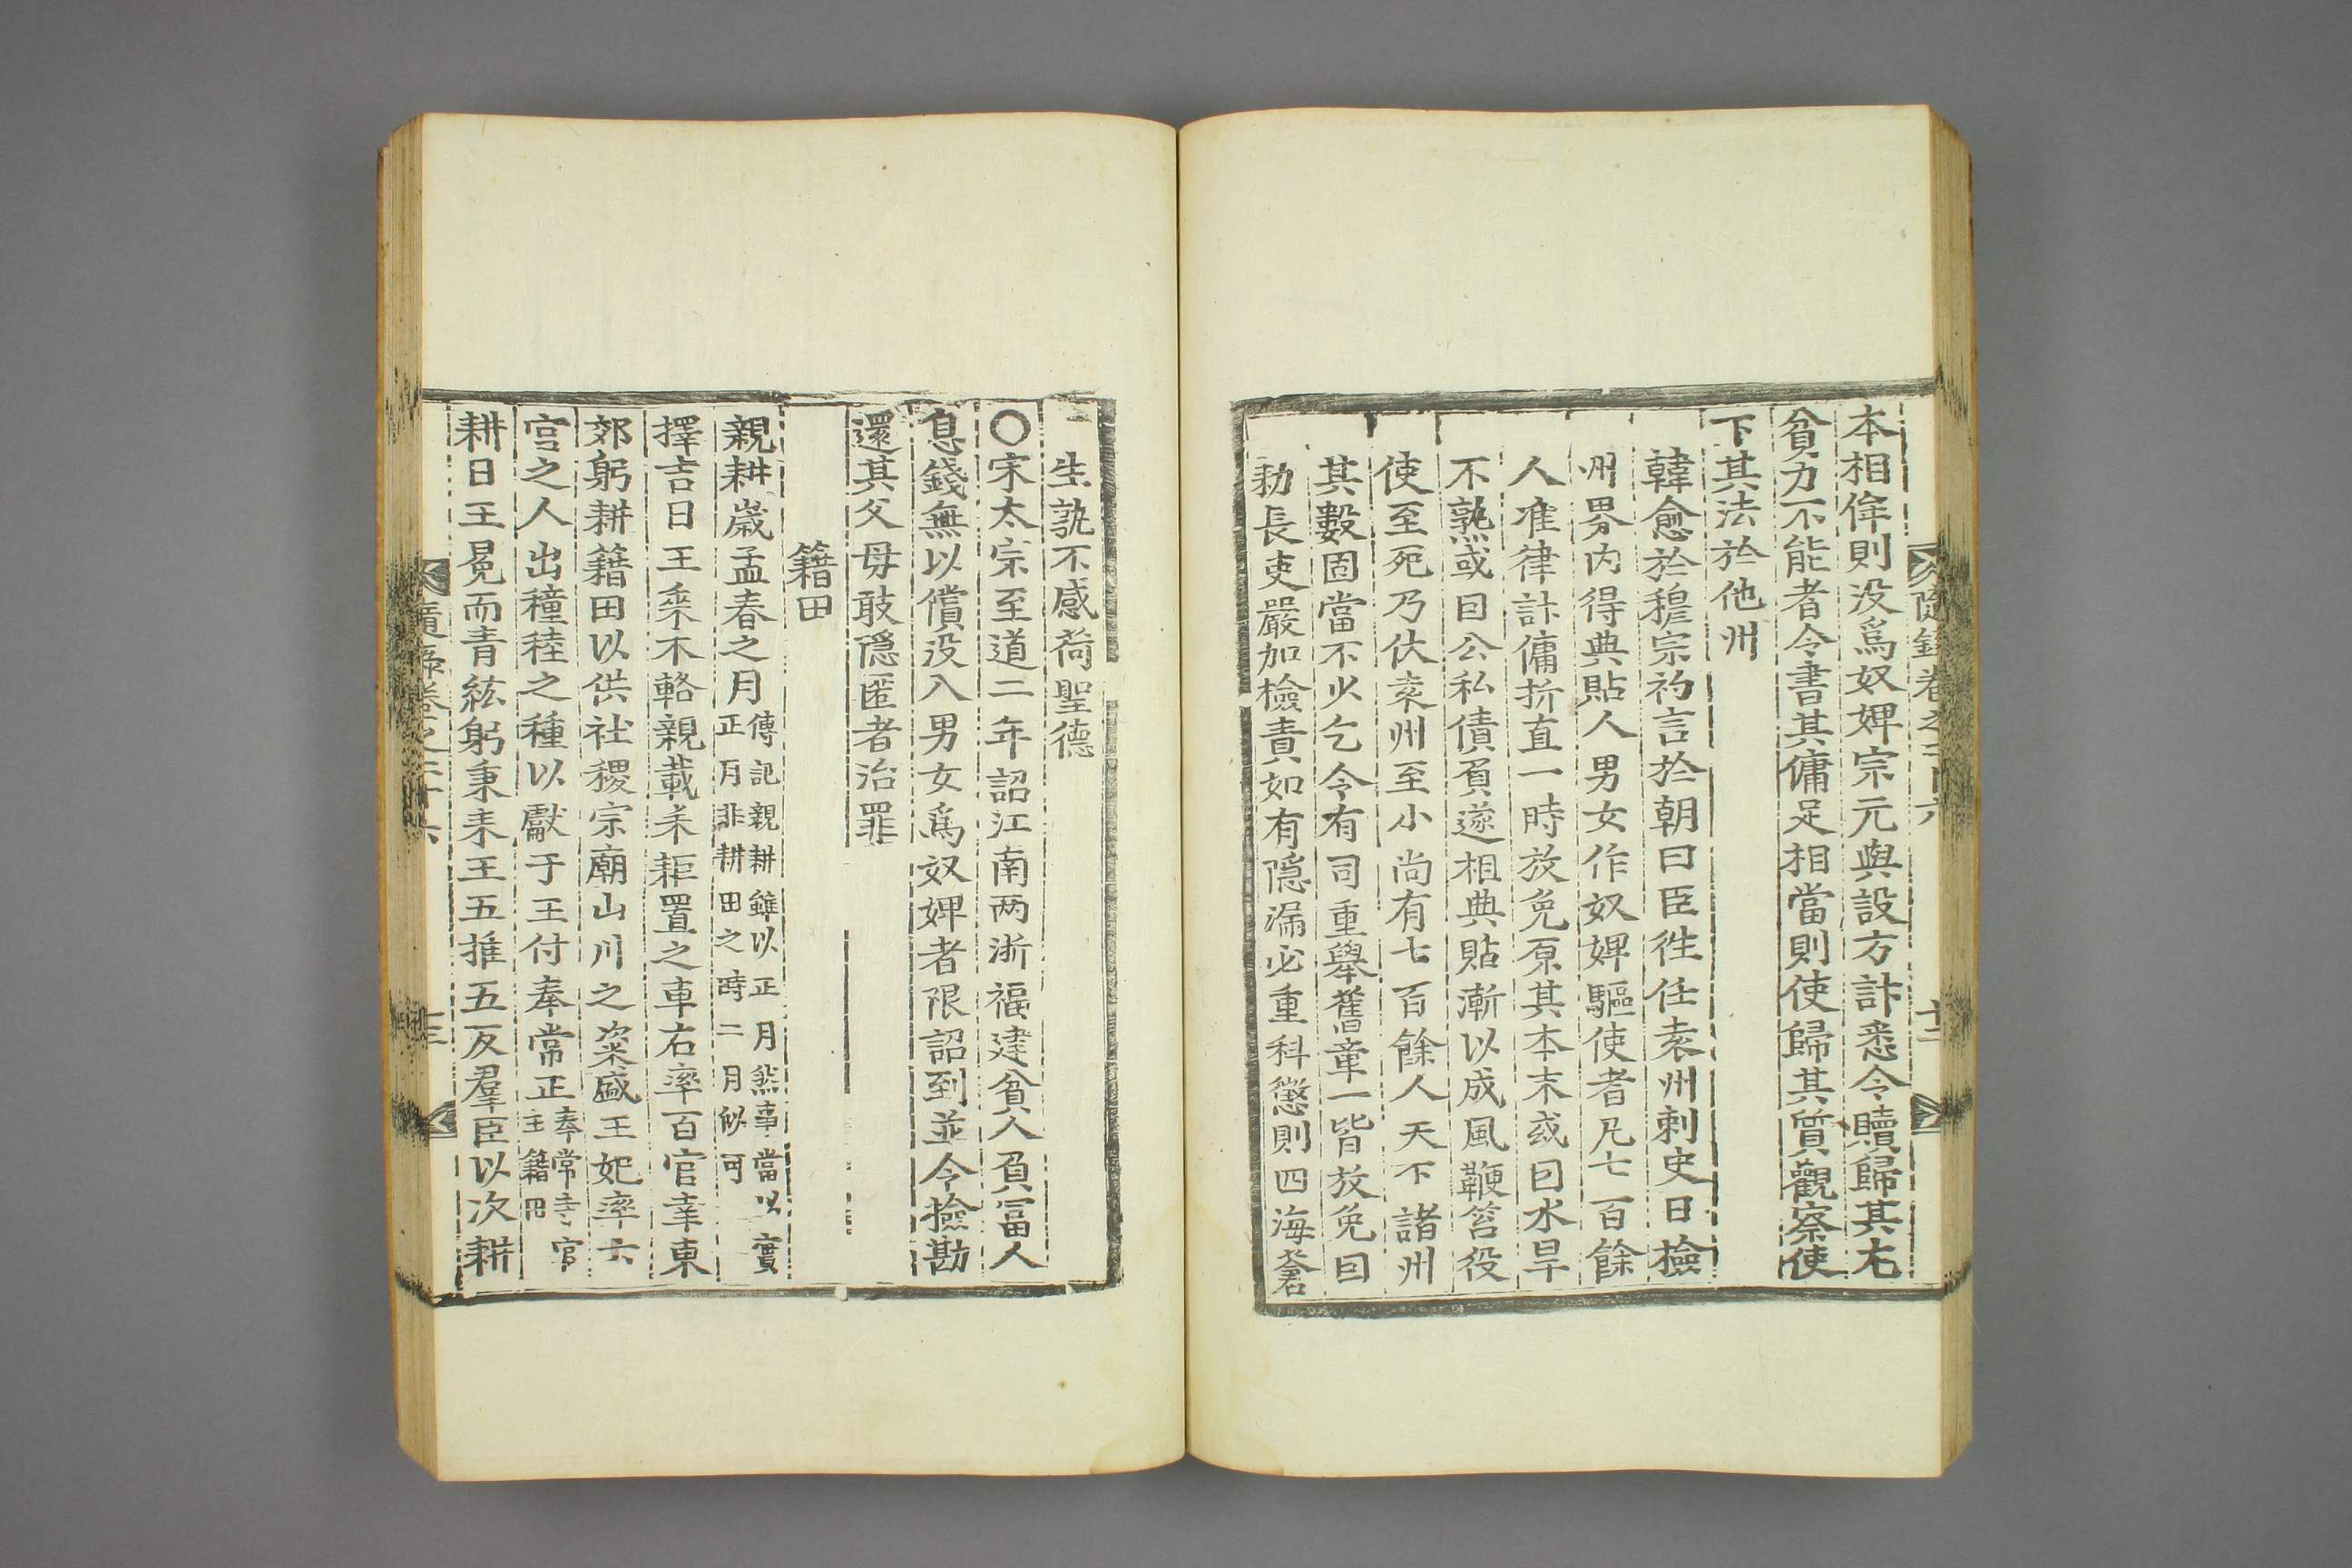 隨錄卷之二十六
十二
本相侔則没爲奴婢宗元與設方計悉令贖歸其尤
貧力不能者令書其傭足相當則使歸其質觀察使
下其法於他州
韓愈於穆宗初言於朝曰臣徃任袁州刺史日撿
州界内得典貼人男女作奴婢驅使者凡七百餘
人准律計傭折直一時放免原其本末或因水旱
不熟或因公私債負遂相典貼漸以成風鞭笞役
使至死乃伏袁州至小尚有七百餘人天下諸州
其數固當不少乞令有司重舉舊章一皆放免因
勑長吏嚴加檢責如有隱漏必重科懲則四海蒼
生孰不感荷聖德
○宋太宗至道二年詔江南两浙福建貧人負富人
息錢無以償没入男女爲奴婢者限詔到並令撿勘
還其父母敢隱匿者治罪
籍田
親耕歲孟春之月傳記親耕雖以正月然事當以實正月非耕田之時二月似可
擇吉日王乘木輅親載耒耟置之車右率百官幸東
郊躬耕籍田以供社稷宗廟山川之粢盛王妃率六
宮之人出穜稑之種以獻于王付奉常正奉常寺官主籍田
耕日王冕而青紘躬秉耒王五推五反羣臣以次耕
隨錄卷之二十六
十三